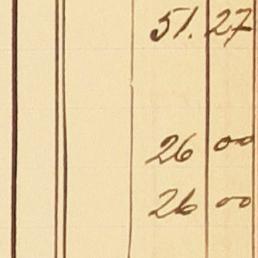 51.27
26 00
26 00